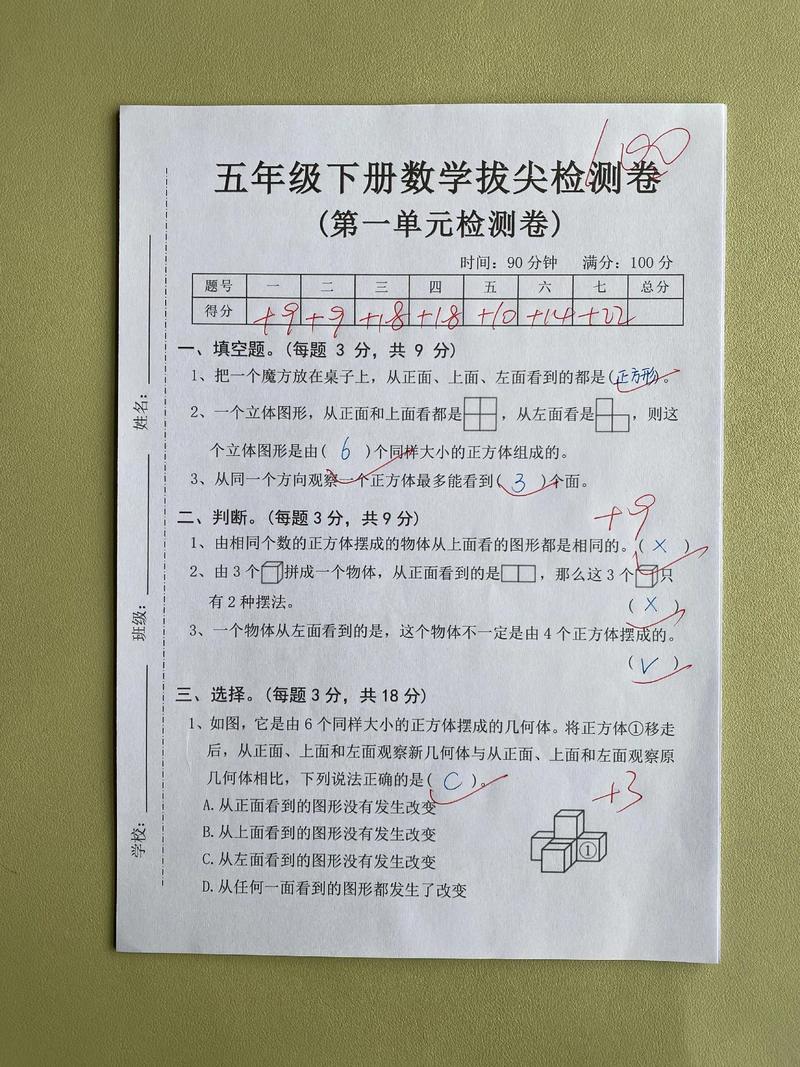 100
五年级下册数学拔尖检测卷
(第一单元检测卷)
时间：90分钟 满分：100分
题号 一 二 三 四 五 六 七 总分
得分 +9 +9 +18 +18 +10 +14 +22
一、填空题。(每题 3 分，共 9 分)
1、把一个魔方放在桌子上，从正面、上面、左面看到的都是(正方形)。
2、一个立体图形，从正面和上面看都是，从左面看是，则这
个立体图形是由( 6 )个同样大小的正方体组成的。
3、从同一个方向观察一个正方体最多能看到( 3 )个面。
+9
二、判断。(每题3分，共9分)
1、由相同个数的正方体摆成的物体从上面看的图形都是相同的。( × )
2、由 3 个拼成一个物体，从正面看到的是，那么这 3 个只
有 2 种摆法。
( × )
3、一个物体从左面看到的是，这个物体不一定是由 4 个正方体摆成的。
( √ )
三、选择。(每题3分，共18分)
1、如图，它是由 6 个同样大小的正方体摆成的几何体。将正方体①移走
后，从正面、上面和左面观察新几何体与从正面、上面和左面观察原
几何体相比，下列说法正确的是( C )。
+3
A.从正面看到的图形没有发生改变
B.从上面看到的图形没有发生改变
C.从左面看到的图形没有发生改变
D.从任何一面看到的图形都发生了改变
①
姓名：
班级：
学校：